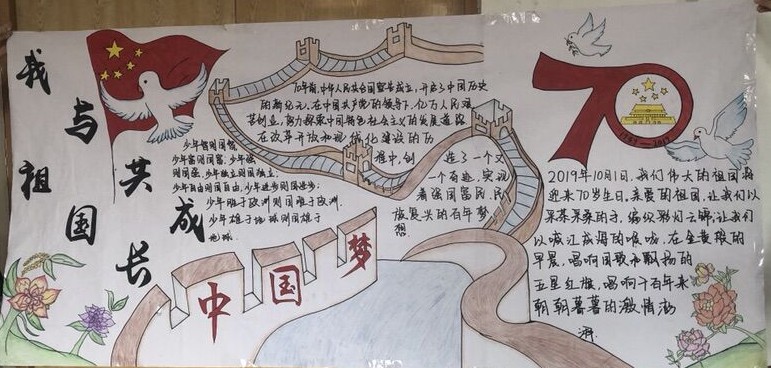 我与祖国共成长
少年智则国智,
少年富则国富,少年强
则国强,少年独立则国独立;
少年自由则国自由,少年进步则国进步;
少年胜于欧洲则国胜于欧洲,
少年雄于地球则国雄于
地球.
70年前,中华人民共和国宣告成立,开启了中国历史
的新纪元.在中国共产党的领导下,亿万人民艰
苦创业,努力探索中国特色社会主义的发展道路
在改革开放和现代化建设的历
程中,创 造了一个又
一个奇迹,实现
着强国富民,民
族复兴的百年梦
想.
中国梦
70
1949-2019
2019年10月1日,我们伟大的祖国将
迎来70岁生日.亲爱的祖国,让我们以
采茶采桑的手,编织彩灯云锦;让我们
以喊江喊海的喉咙,在金黄般的
早晨,唱响国歌和飘扬的
五星红旗,唱响千百年来
朝朝暮暮的激情澎
湃.